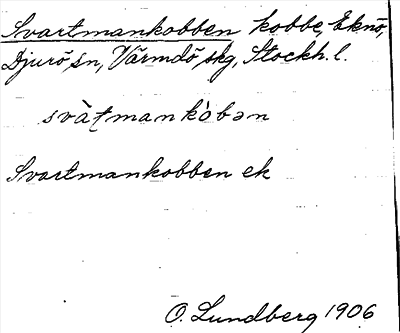 Svartmankobben kobbe, Eknö,
Djurö sn, Värmdö skg, Stockh. l.
svàt̠mankòbən
Svartmankobben ek
O. Lundberg 1906